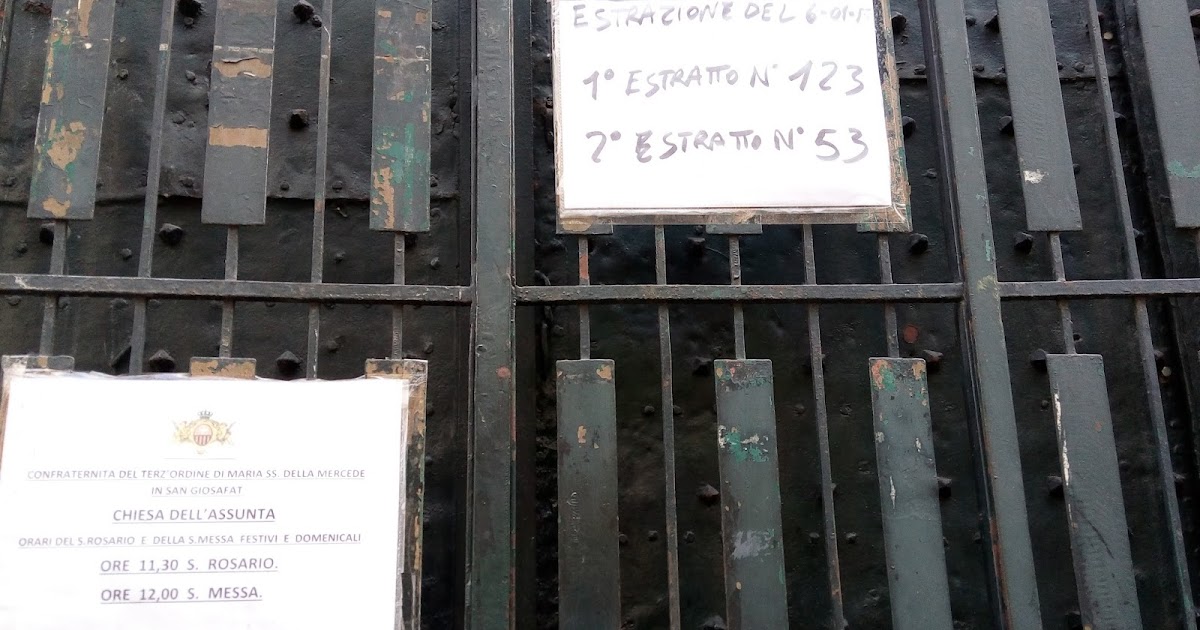 ESTRAZIONE DEL 6-01-1
1° ESTRATTO N° 123
2° ESTRATTO N° 53
CONFRATERNITA DEL TERZ'ORDINE DI MARIA SS. DELLA MERCEDE
IN SAN GIOSAFAT
CHIESA DELL'ASSUNTA
ORARI DEL S.ROSARIO E DELLA S.MESSA FESTIVI E DOMENICALI
ORE 11,30 S. ROSARIO.
ORE 12,00 S. MESSA.